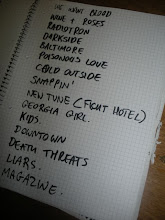 NIGHT BLOOD
WINE + ROSES
RADIOTRON
DARKSIDE
BALTIMORE
POISONOUS LOVE
COLD OUTSIDE
SNAPPIN'
NEW TUNE (FIGHT HOTEL)
GEORGIA GIRL.
KIDS.
DOWNTOWN
DEATH THREATS
LIARS.
MAGAZINE.